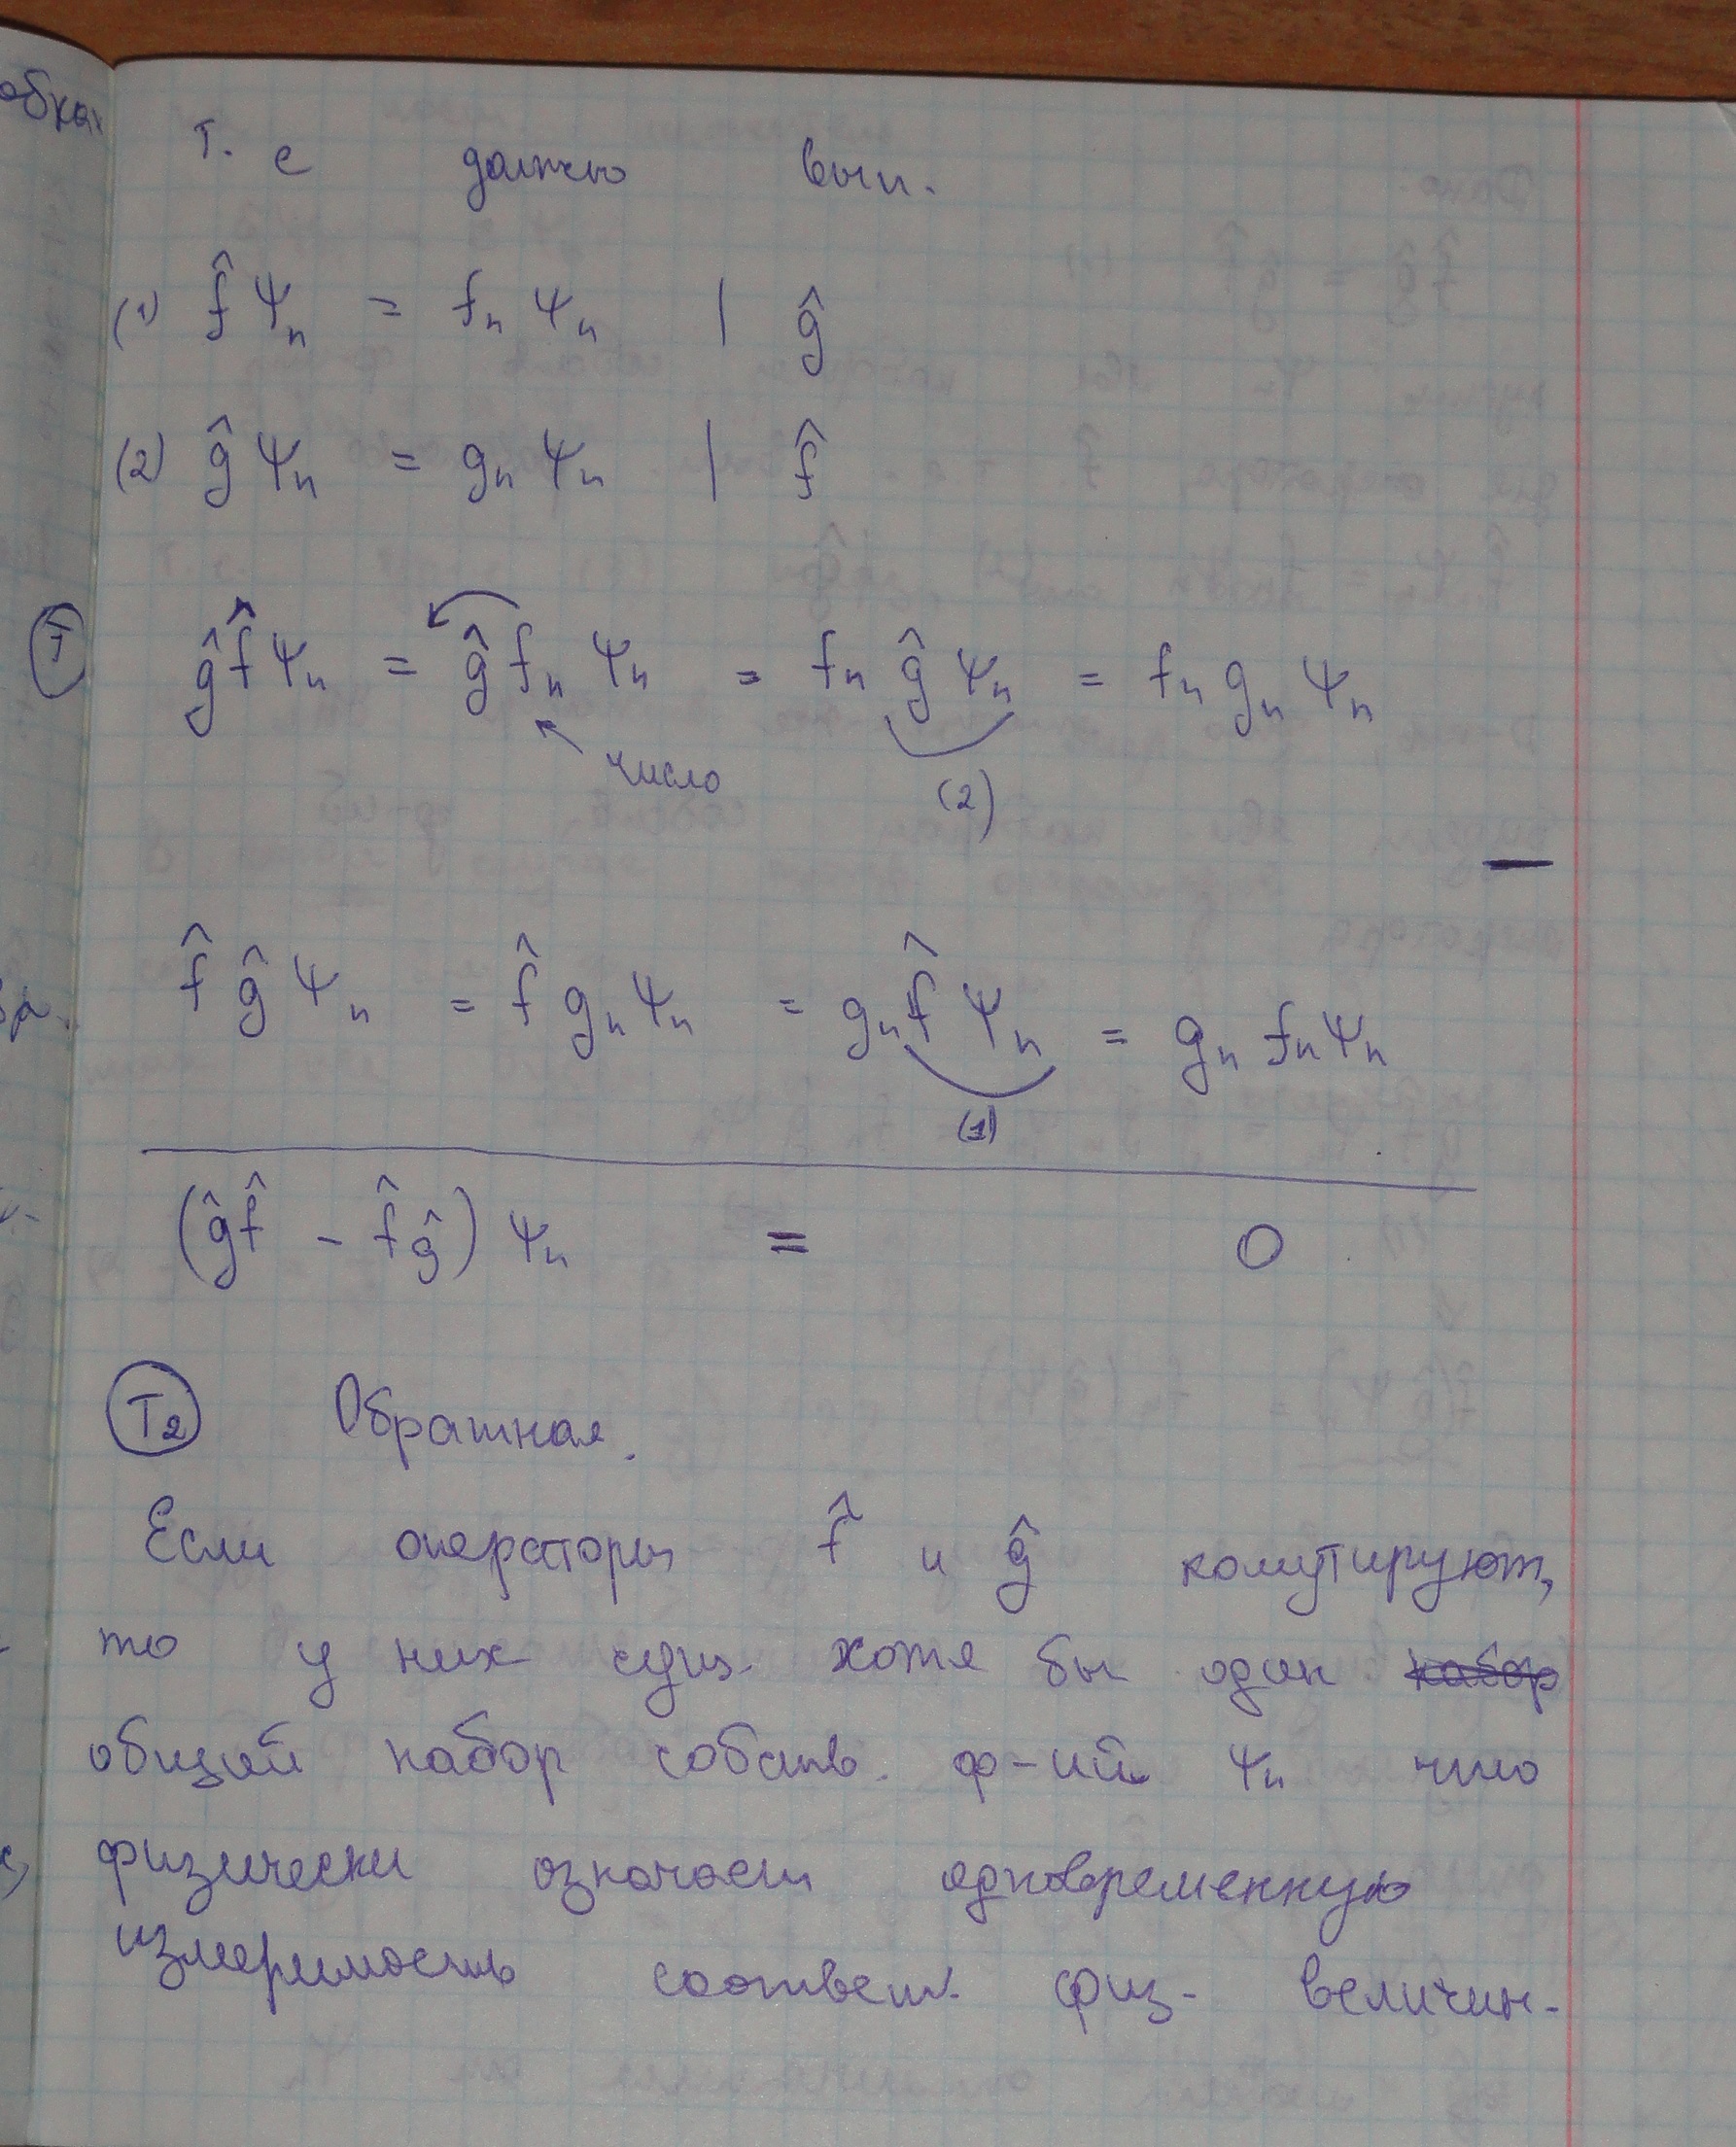 Т. е должно вып.
(1) f̂ Ψn = fn Ψn | ĝ
(2) ĝ Ψn = gn Ψn | f̂
ĝ f̂ Ψn = ĝ fn Ψn = fn ĝ Ψn = fn gn Ψn
число (2)
—
f̂ ĝ Ψn = f̂ gn Ψn = gn f̂ Ψn = gn fn Ψn
(1)
(ĝ f̂ - f̂ ĝ) Ψn = 0
T2 Обратная.
Если операторы f̂ и ĝ комутируют,
то у них сущ. хотя бы один набор
общий набор собств. ф-ий Ψn что
физически означает одновременную
измеримость соответ. физ. величин.